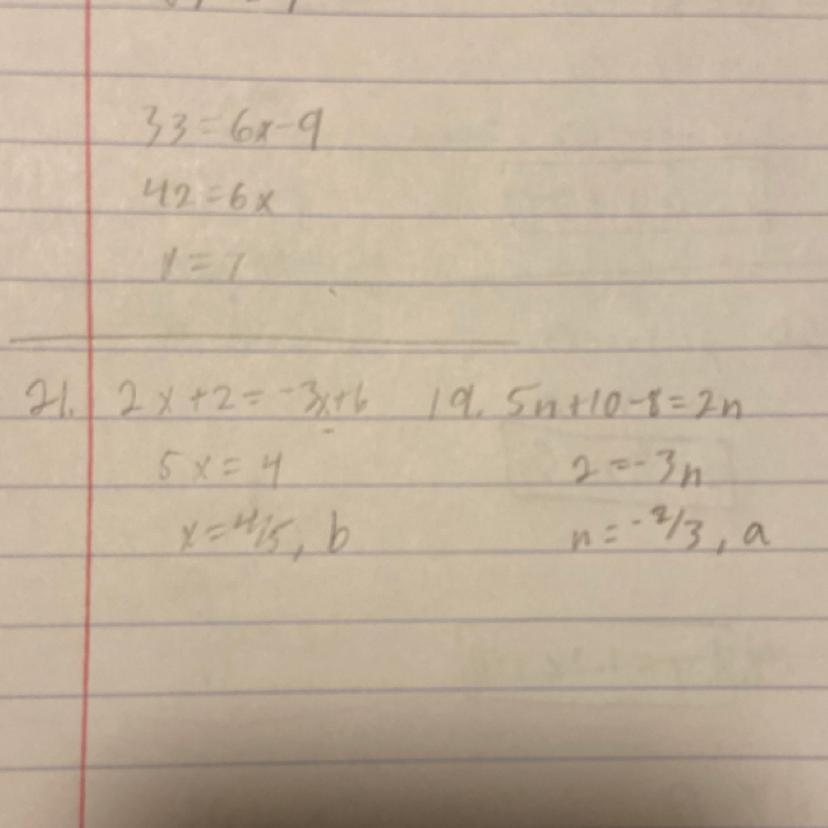 33=6x-9
42=6x
x=7
21. 2x+2=-3x+6
5x=4
x=4/5, b
19. 5n+10-8=2n
2=-3n
n=-2/3, a